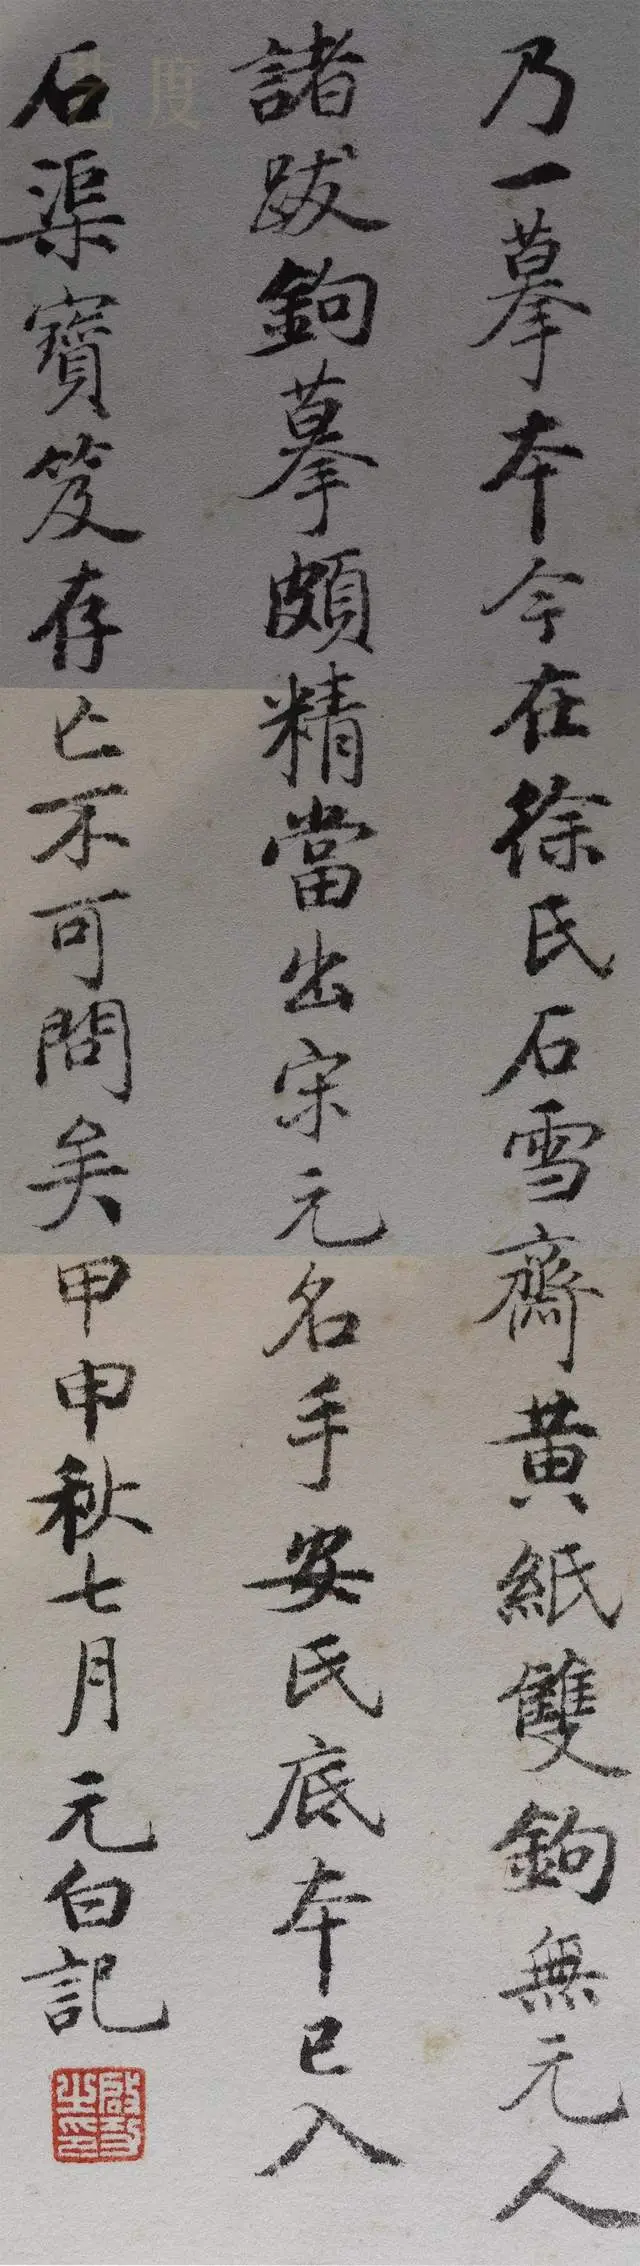 乃一摹本今在徐氏石雪齋黃紙雙鉤無元人
諸跋鉤摹頗精當出宋元名手安氏底本已入
石渠寶笈存亡不可問矣甲申秋七月元白記
啟功之印